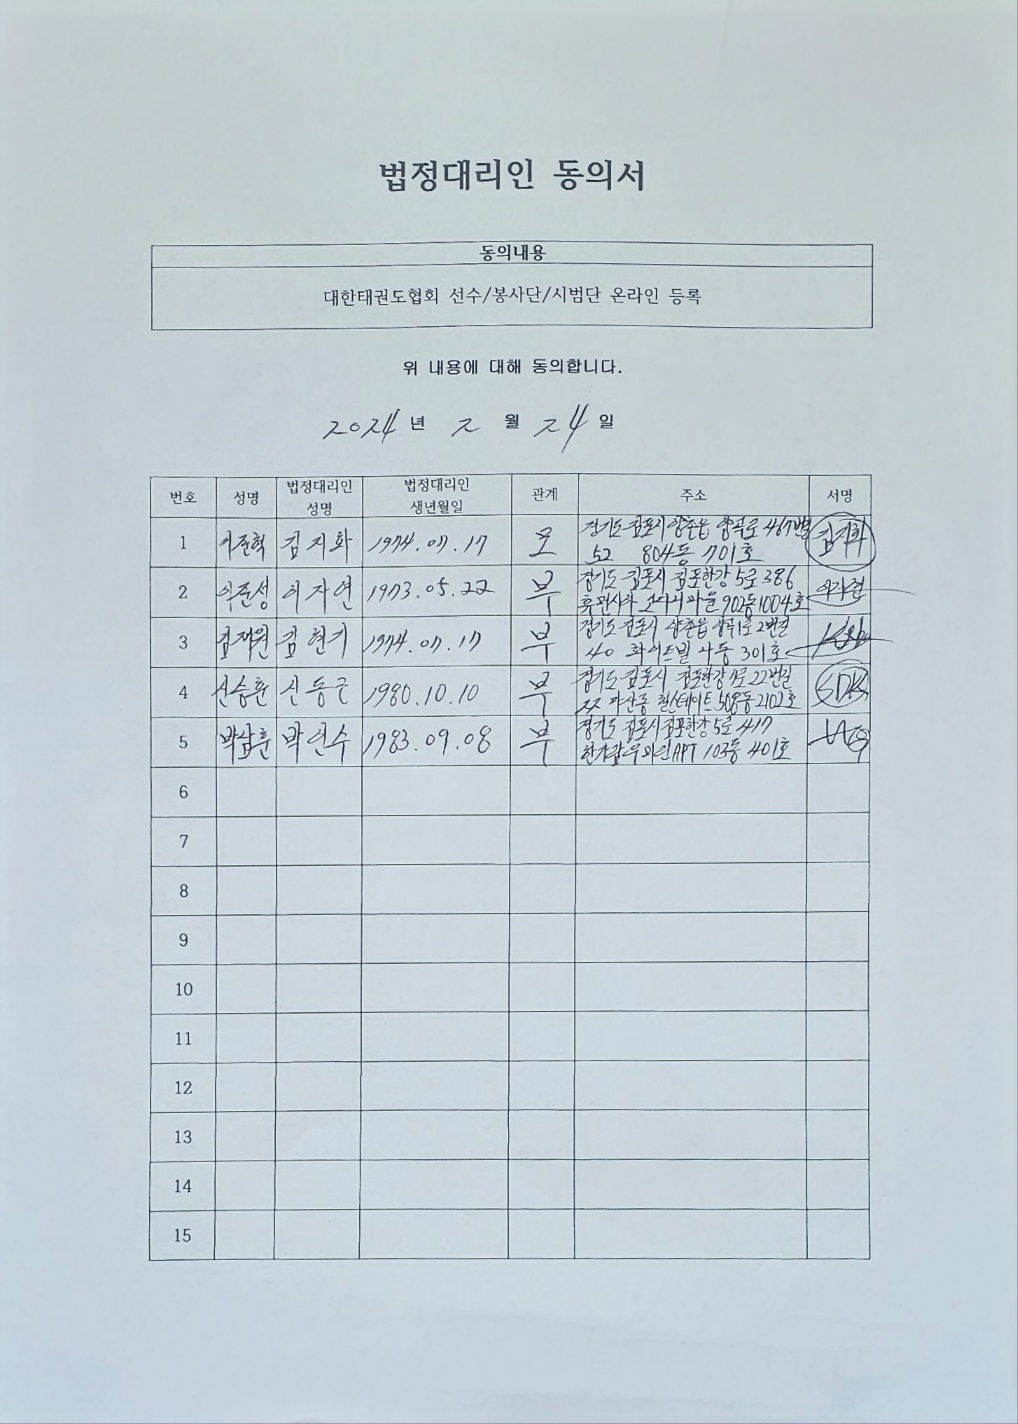 법정대리인 동의서
동의내용
대한태권도협회 선수/봉사단/시범단 온라인 등록
위 내용에 대해 동의합니다.
2024 년 2 월 24 일
번호 성명 법정대리인 성명 법정대리인 생년월일 관계 주소 서명
1 이준혁 김지화 1974.07.17 모 경기도 김포시 양촌읍 양곡로 467번길 김지화
52 804동 701호
2 이준성 이자연 1973.05.22 부 경기도 김포시 김포한강5로 386 이자연
902동 1004호
3 김재원 김현기 1974.07.17 부 경기도 김포시 양촌읍 양곡1로 2번길
40 화이트빌 가동 301호
4 신승훈 신동근 1980.10.10 부 경기도 김포시 김포한강1로 22번길 SDK
힐스테이트 508동 2102호
5 박연수 1983.09.08 부 경기도 김포시 김포한강5로 417
APT 103동 401호
6
7
8
9
10
11
12
13
14
15